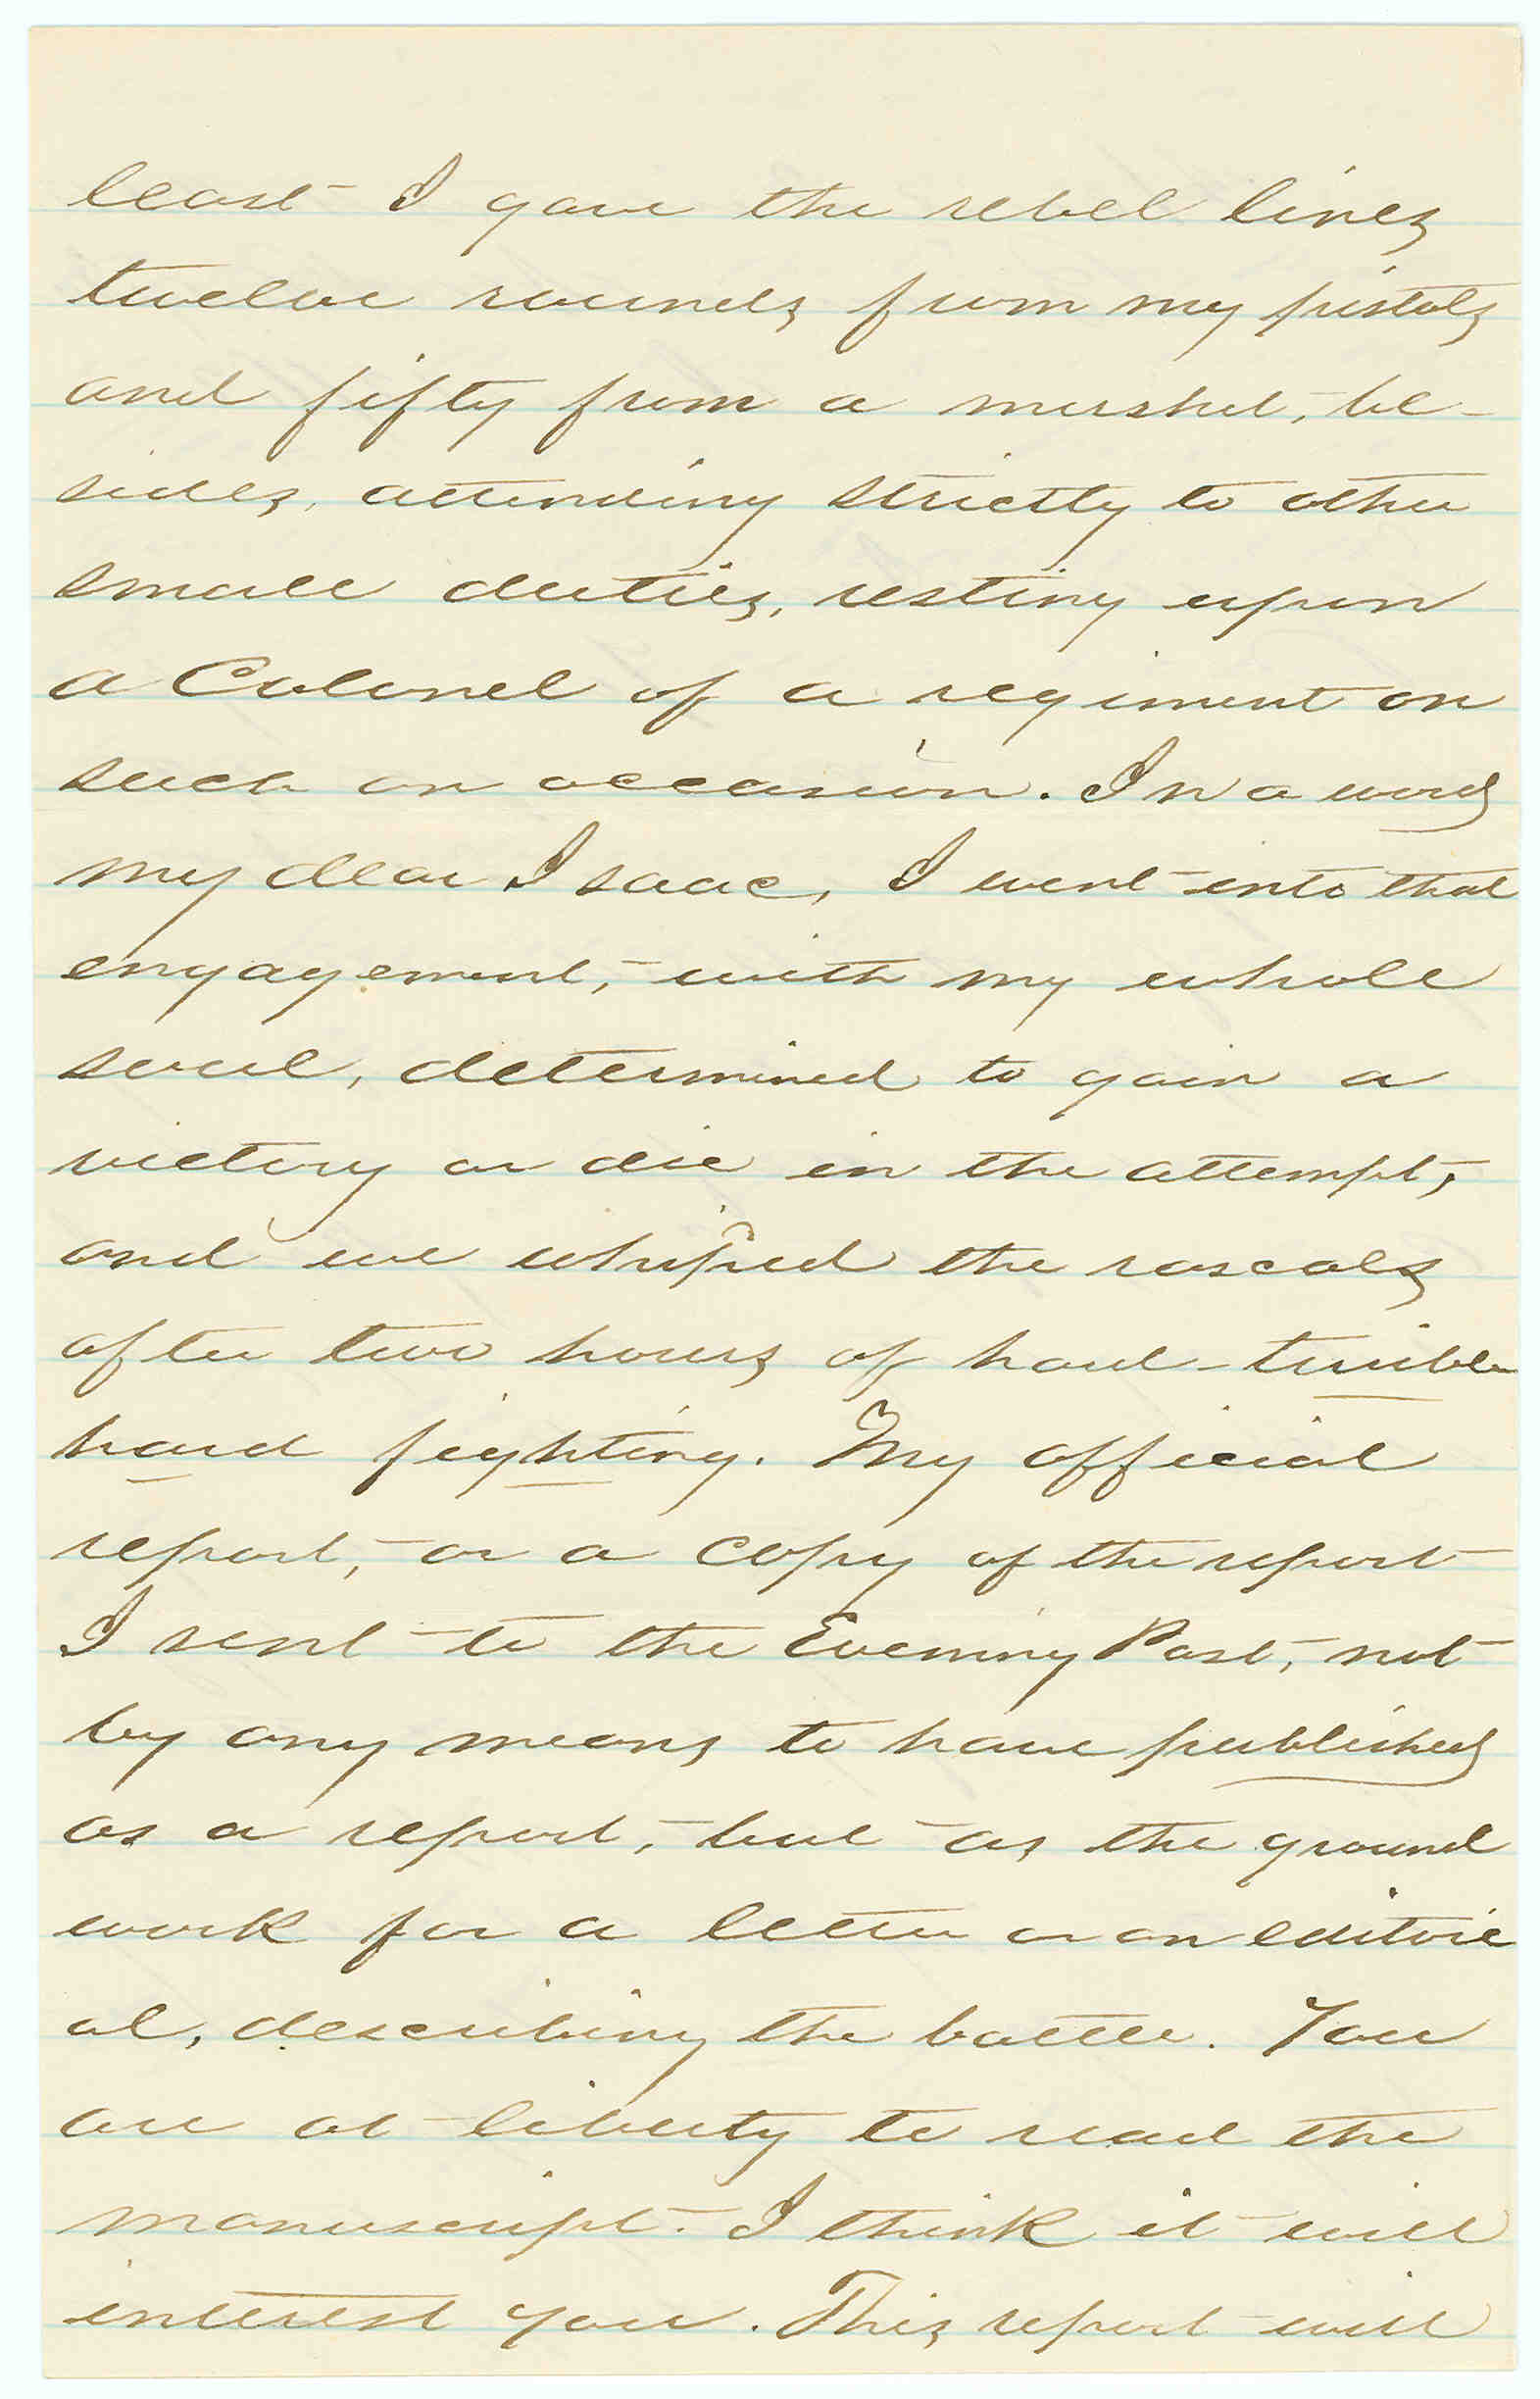 least I gave the rebel lines
twelve rounds from my pistols
and fifty from a musket, be-
sides, attending strictly to other
small duties, resting upon
a Colonel of a regiment on
such an occasion. In a word
my dear Isaac, I went into that
engagement, with my whole
soul, determined to gain a
victory or die in the attempt,
and we whiped the rascals
after two hours of hard - terrible
hard fighting. My official
report, or a copy of the report
I sent to the Evening Post, not
by any means to have published
as a report, but as the ground
work for a letter or an editori
al, describing the battle. You
are at liberty to read the
manuscript. I think it will
interest you. This report will